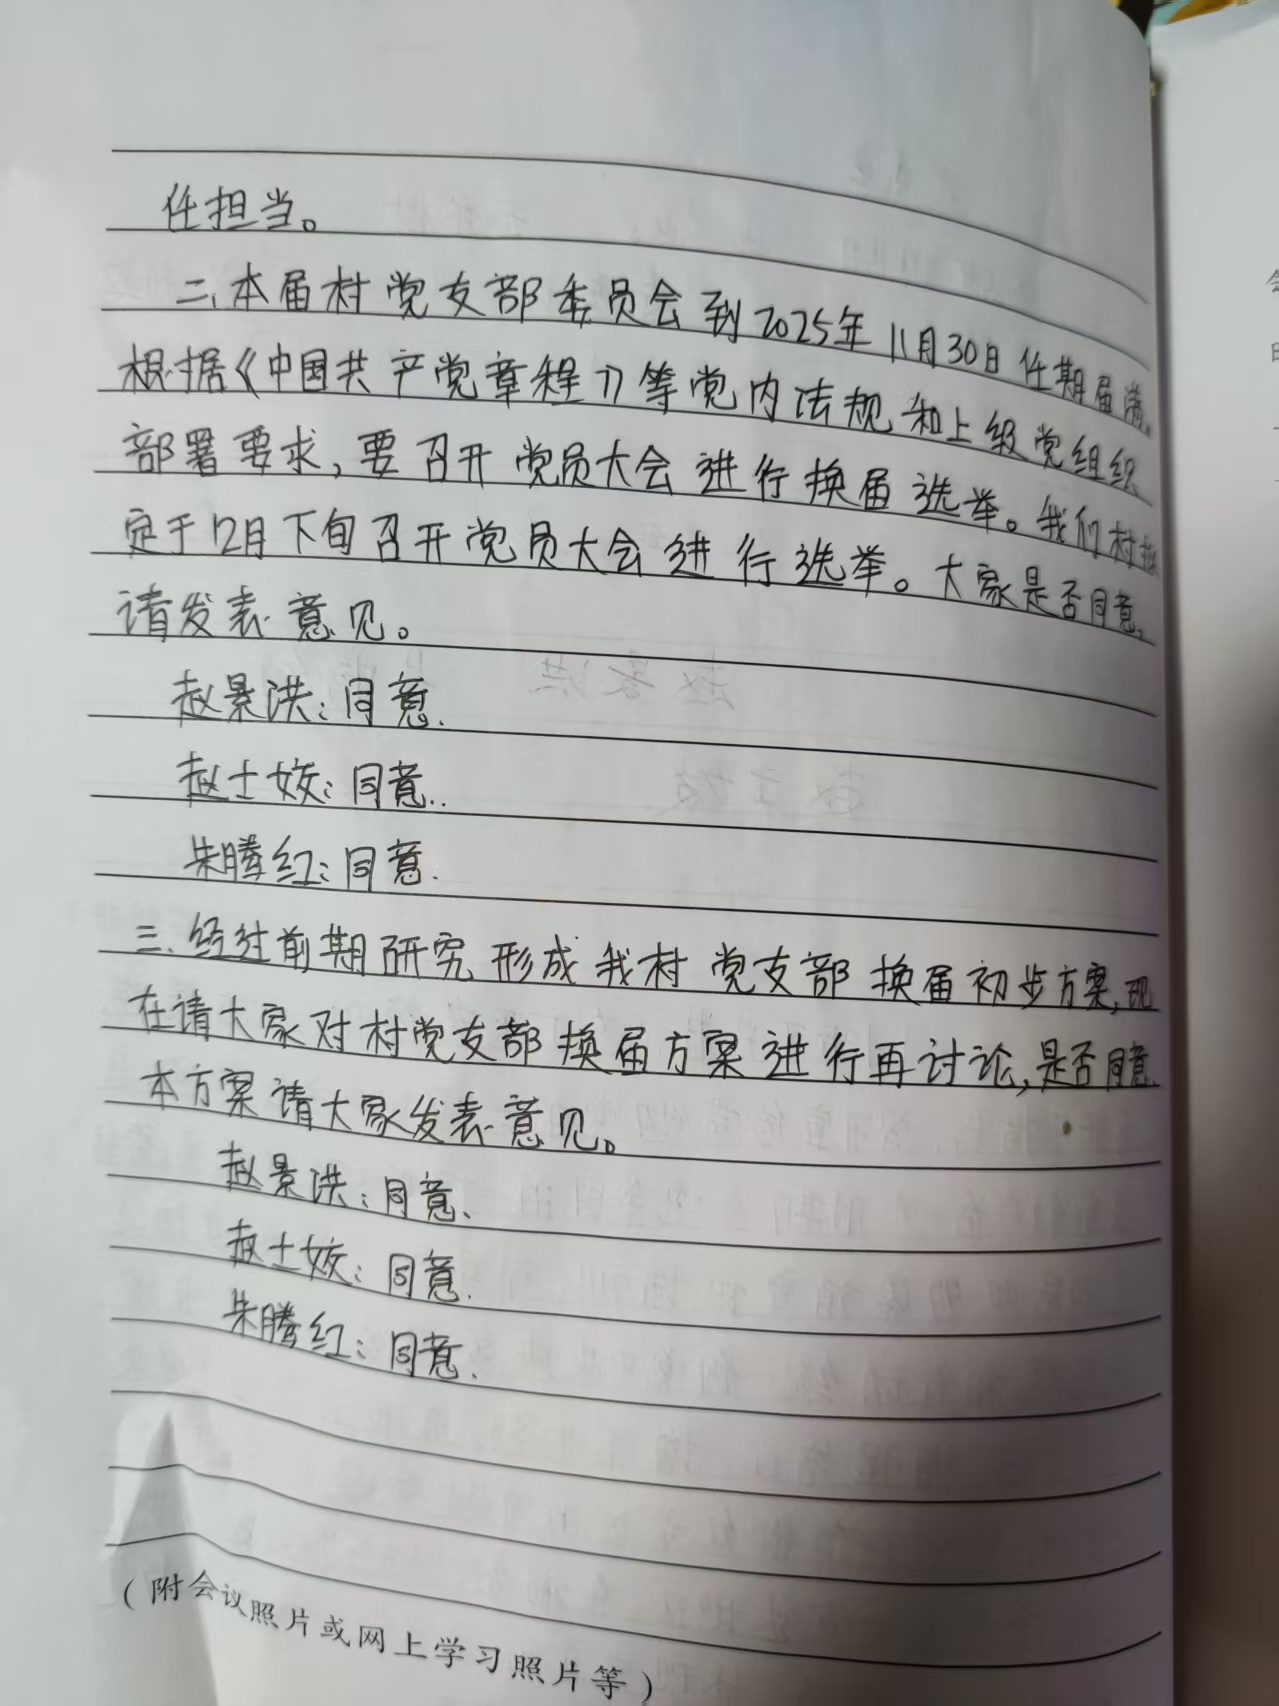 任担当。
二、本届村党支部委员会到2025年11月30日任期届满。
根据《中国共产党章程》等党内法规和上级党组织
部署要求,要召开党员大会进行换届选举。我们村拟
定于12月下旬召开党员大会进行选举。大家是否同意,
请发表意见。
赵景洪:同意.
赵士姣:同意..
朱腾红:同意.
三.经过前期研究形成我村党支部换届初步方案,现
在请大家对村党支部换届方案进行再讨论,是否同意
本方案请大家发表意见。
赵景洪:同意、
赵士姣:同意.
朱腾红:同意.
(附会议照片或网上学习照片等)